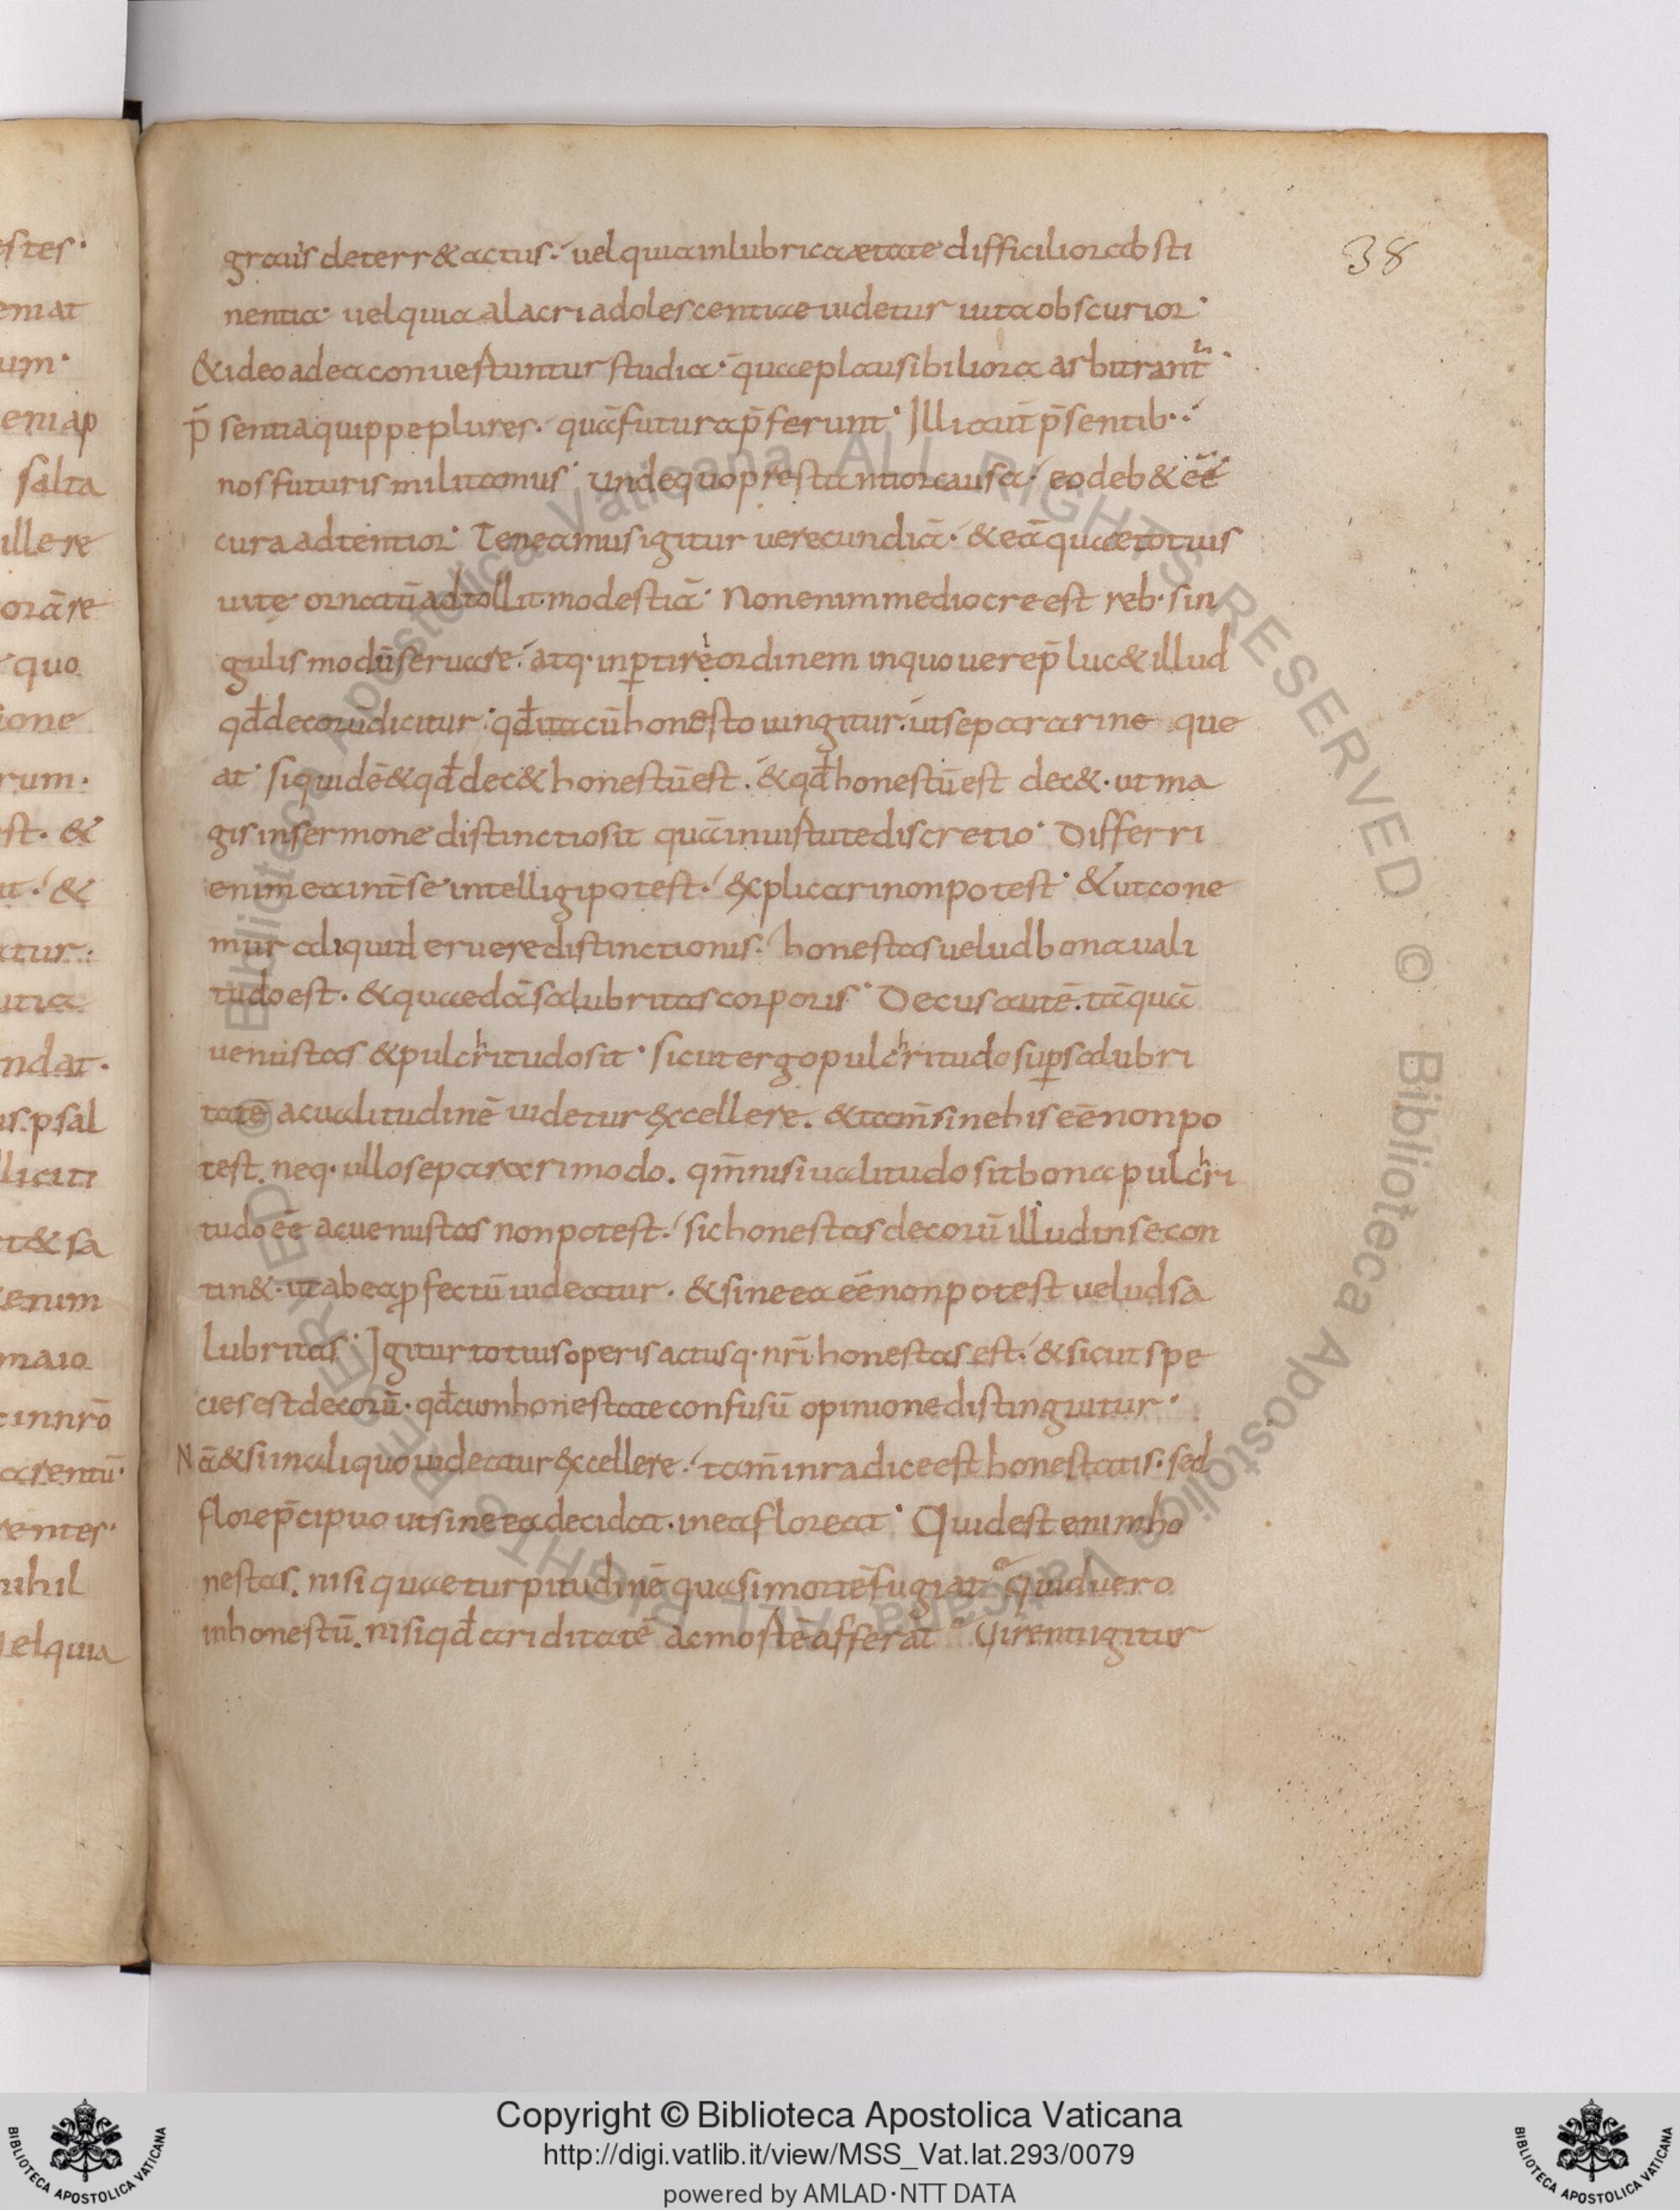 38
grauis deterr& actus· uel quia in lubrica aetate difficilior absti
nentia· uel quia alacri adolescentiae uidetur uita obscurior·
& ideo ad ea conuertuntur studia· quae plausibiliora arbitrant̃·
p̄sentia quippe plures· quā futura p̄ferunt· Illi aut̄ p̄sentib·
nos futuris militamus· unde quo prestantior causa· eo deb& eē
cura adtentior· Teneamus igitur uerecundiā· & eā quae totius
uitę ornatū adtollit modestiā· Non enim mediocre est reb· sin
gulis modū seruare· atq· inpertire ordinem in quo uere p̄luc& illud
qđ decorū dicitur· qđ ita cū honesto iungitur· ut separari ne que
at· siquidē & qđ dec& honestū est· & qđ honestū est dec&· ut ma
gis in sermone distinctio sit quā in uirtute discretio· Differri
enim ea int̄ se intelligi potest· explicari non potest· & ut cone
mur aliquid eruere distinctionis· honestas uelud bona uali
tudo est· & quaedā salubritas corporis· Decus autē· tāquā
uenustas & pulchritudo sit· sicut ergo pulchritudo sup salubri
tatē ac ualitudinē uidetur excellere· & tam̄ sine his eē non po
test· neq· ullo separari modo· qm̄ nisi ualitudo sit bona pulchri
tudo eē ac uenustas non potest· sic honestas decorū illud in se con
tin&· ut ab ea pfectū uideatur· & sine ea eē non potest uelud sa
lubritas· Igitur totius operis actusq· nr̄i honestas est· & sicut spe
cies est decorū· qđ cum honestate confusū opinione distinguitur·
Nā & si in aliquo uideatur excellere· tam̄ in radice est honestatis· sed
flore p̄cipuo ut sine ea decidat· in ea floreat· Quid est enim ho
nestas· nisi quae turpitudinē quasi mortē fugiat· quid uero
inhonestū· nisi qđ ariditatē ac mortē afferat· Uirenti igitur
estes·
eniat
um·
eniap
salta
illere
orāre
quo
ione
rum·
st· &
ut· &
atur·
utia
ndat·
us· psal
liciti
t& sa
erum
maio
innr̄o
arentū·
rentes·
nihil
uelquia
© Biblioteca Apostolica Vaticana ALL RIGHTS RESERVED © Biblioteca Apostolica Vaticana ALL RIGHTS RESERVED
Copyright © Biblioteca Apostolica Vaticana
http://digi.vatlib.it/view/MSS_Vat.lat.293/0079
powered by AMLAD·NTT DATA
BIBLIOTECA APOSTOLICA VATICANA
BIBLIOTECA APOSTOLICA VATICANA